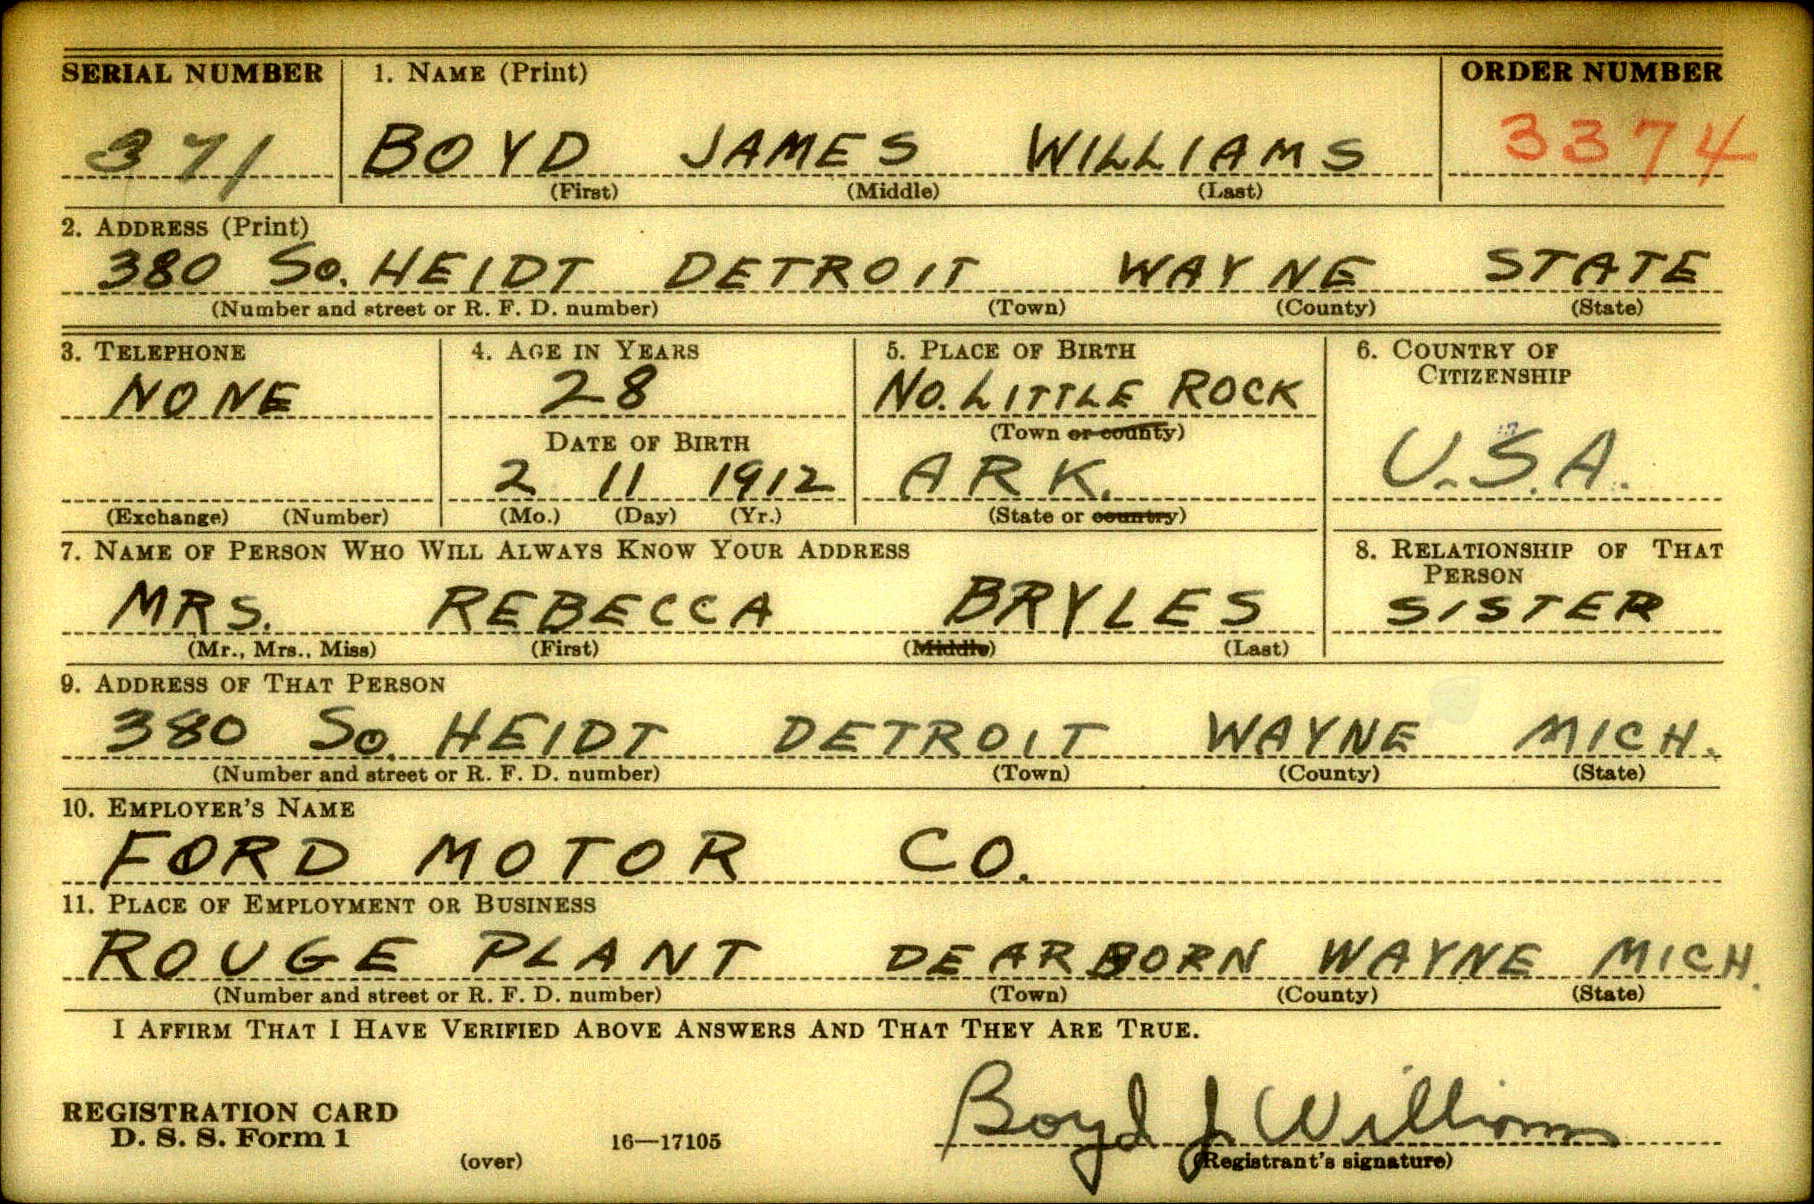 SERIAL NUMBER 1. NAME (Print) ORDER NUMBER
371 BOYD JAMES WILLIAMS 3374
(First) (Middle) (Last)
2. ADDRESS (Print)
380 So. HEIDT DETROIT WAYNE STATE
(Number and street or R. F. D. number) (Town) (County) (State)
3. TELEPHONE 4. AGE IN YEARS 5. PLACE OF BIRTH 6. COUNTRY OF
CITIZENSHIP
NONE 28 NO. LITTLE ROCK
(Town or county)
DATE OF BIRTH
2 11 1912 ARK. U.S.A.
(Exchange) (Number) (Mo.) (Day) (Yr.) (State or country)
7. NAME OF PERSON WHO WILL ALWAYS KNOW YOUR ADDRESS 8. RELATIONSHIP OF THAT
PERSON
MRS. REBECCA BRYLES SISTER
(Mr., Mrs., Miss) (First) (Middle) (Last)
9. ADDRESS OF THAT PERSON
380 So. HEIDT DETROIT WAYNE MICH.
(Number and street or R. F. D. number) (Town) (County) (State)
10. EMPLOYER'S NAME
FORD MOTOR CO.
11. PLACE OF EMPLOYMENT OR BUSINESS
ROUGE PLANT DEARBORN WAYNE MICH.
(Number and street or R. F. D. number) (Town) (County) (State)
I AFFIRM THAT I HAVE VERIFIED ABOVE ANSWERS AND THAT THEY ARE TRUE.
REGISTRATION CARD
D. S. S. Form 1 16—17105 Boyd J Williams
(over) (Registrant's signature)